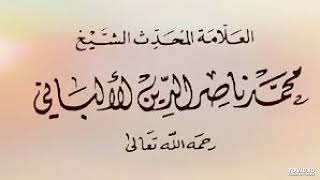 العلّامة المحدّث الشّيخ
محمّد ناصر الدّين الألباني
رحمه اللّه تعالى